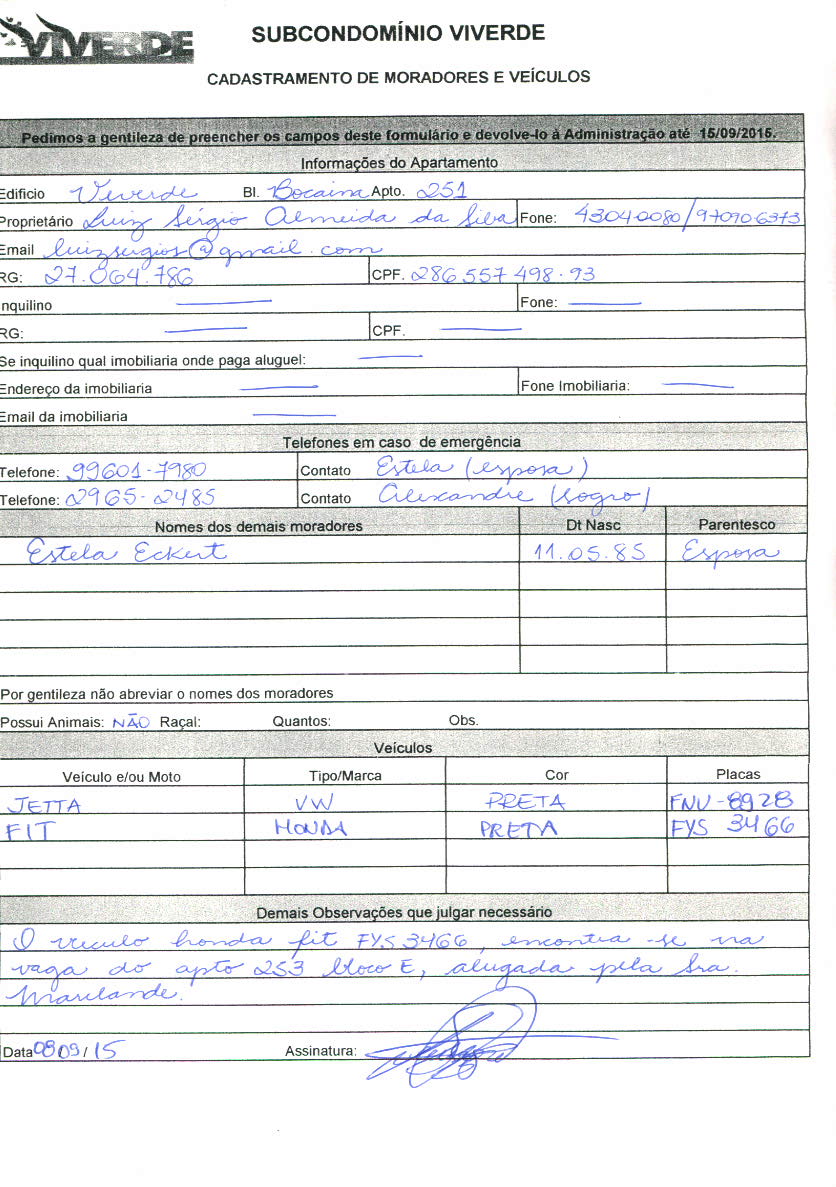 VIVERDE
SUBCONDOMÍNIO VIVERDE
CADASTRAMENTO DE MORADORES E VEÍCULOS
Pedimos a gentileza de preencher os campos deste formulário e devolve-lo à Administração até 15/09/2015.
Informações do Apartamento
Edificio Viverde Bl. Bocaina Apto. 251
Proprietário Luiz Sérgio Almeida da Silva Fone: 43040080/97090-6373
Email luizsergios@gmail.com
RG: 27.064.786 CPF. 286.557 498-93
Inquilino Fone:
RG: CPF.
Se inquilino qual imobiliaria onde paga aluguel:
Endereço da imobiliaria Fone Imobiliaria:
Email da imobiliaria
Telefones em caso de emergência
Telefone: 99601-7980 Contato Estela (esposa)
Telefone: 2965-2485 Contato Alexandre (sogro)
Nomes dos demais moradores Dt Nasc Parentesco
Estela Eckert 11.05.85 Esposa
Por gentileza não abreviar o nomes dos moradores
Possui Animais: NÃO Raçal: Quantos: Obs.
Veículos
Veículo e/ou Moto Tipo/Marca Cor Placas
JETTA VW PRETA FNU-8928
FIT HONDA PRETA FYS 3466
Demais Observações que julgar necessário
O veículo honda fit FYS 3466, encontra-se na
vaga do apto 253 bloco E, alugada pela Sra.
Data 08 09/15 Assinatura: